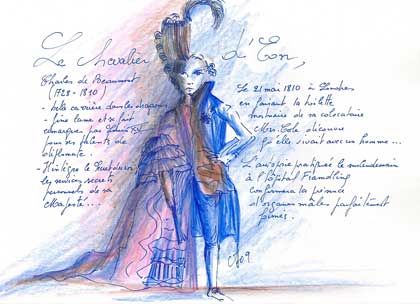 Le chevalier d'Eon,
Charles de Beaumont
(1728 - 1810)
- belle carrière dans les dragons
- fine lame et se fait
remarquer par Louis XV
pour ses talents de
diplomate.
- il intègre le Secret du roi
les services secrets
personnels de sa
Majesté...
Le 21 mai 1810 à Londres
en faisant la toilette
mortuaire de sa colocataire
Mrs. Cole découvre
qu'elle vivait avec un homme...
L'autopsie pratiquée le surlendemain
à l'Hôpital Framdling
confirmera la présence
d'organes mâles parfaitement
formés.
09